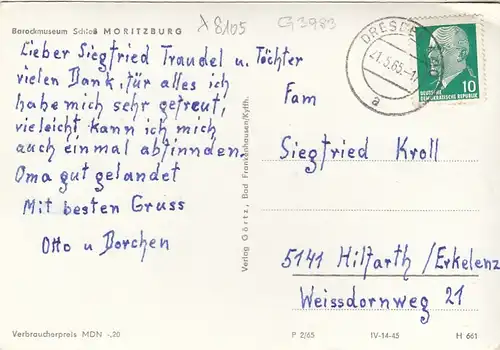 Barockmuseum Schloß MORITZBURG
λ 8105
G3983
Lieber Siegfried Traudel u. Töchter
vielen Dank, für alles ich
habe mich sehr gefreut,
vieleicht kann ich mich
auch einmal abfinnden.
Oma gut gelandet
Mit besten Gruss
Otto u Borchen
Verbraucherpreis MDN -,20
Verlag Görtz, Bad Frankenhausen/Kyffh.
DRESDEN
21.5.65.-17
a
DEUTSCHE
DEMOKRATISCHE REPUBLIK
10
Fam
Siegfried Kroll
5141 Hilfarth /Erkelenz
Weissdornweg 21
P 2/65
IV-14-45
H 661